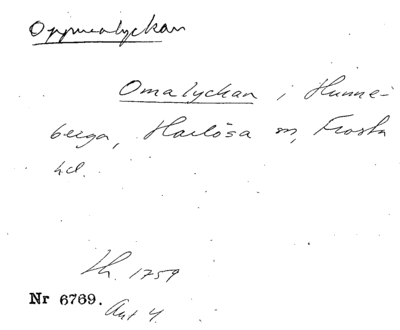 Oppmalyckan
Omalyckan i Hunne-
berga, Harlösa sn, Frosta
hd.
Lh. 1759
Nr 6769.
Akt 4.